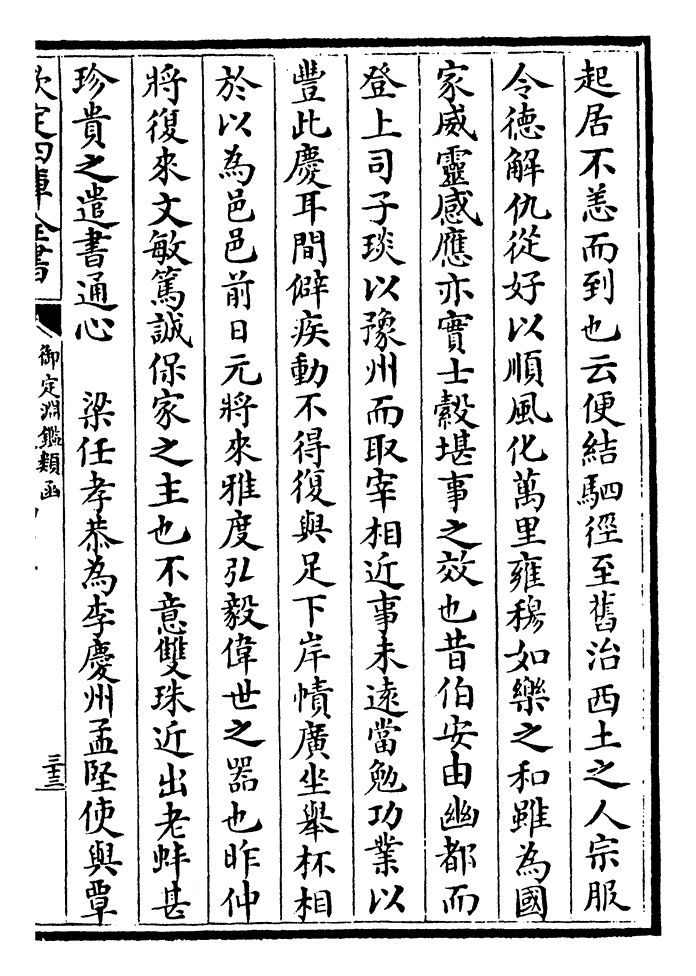 起居不恙而到也云便結駟徑至舊治西土之人宗服
令德解仇從好以順風化萬里雍穆如樂之和雖為國
家威靈感應亦實士縠堪事之效也昔伯安由幽都而
登上司子琰以豫州而取宰相近事未遠當勉功業以
豐此慶耳間僻疾動不得復與足下岸幘廣坐舉杯相
於以為邑邑前日元將來雅度弘毅偉世之器也昨仲
將復來文敏篤誠保家之主也不意雙珠近出老蚌甚
珍貴之遣書通心　梁任孝恭為李慶州孟堅使與覃
欽定四庫全書
御定淵鑑類函
三十三